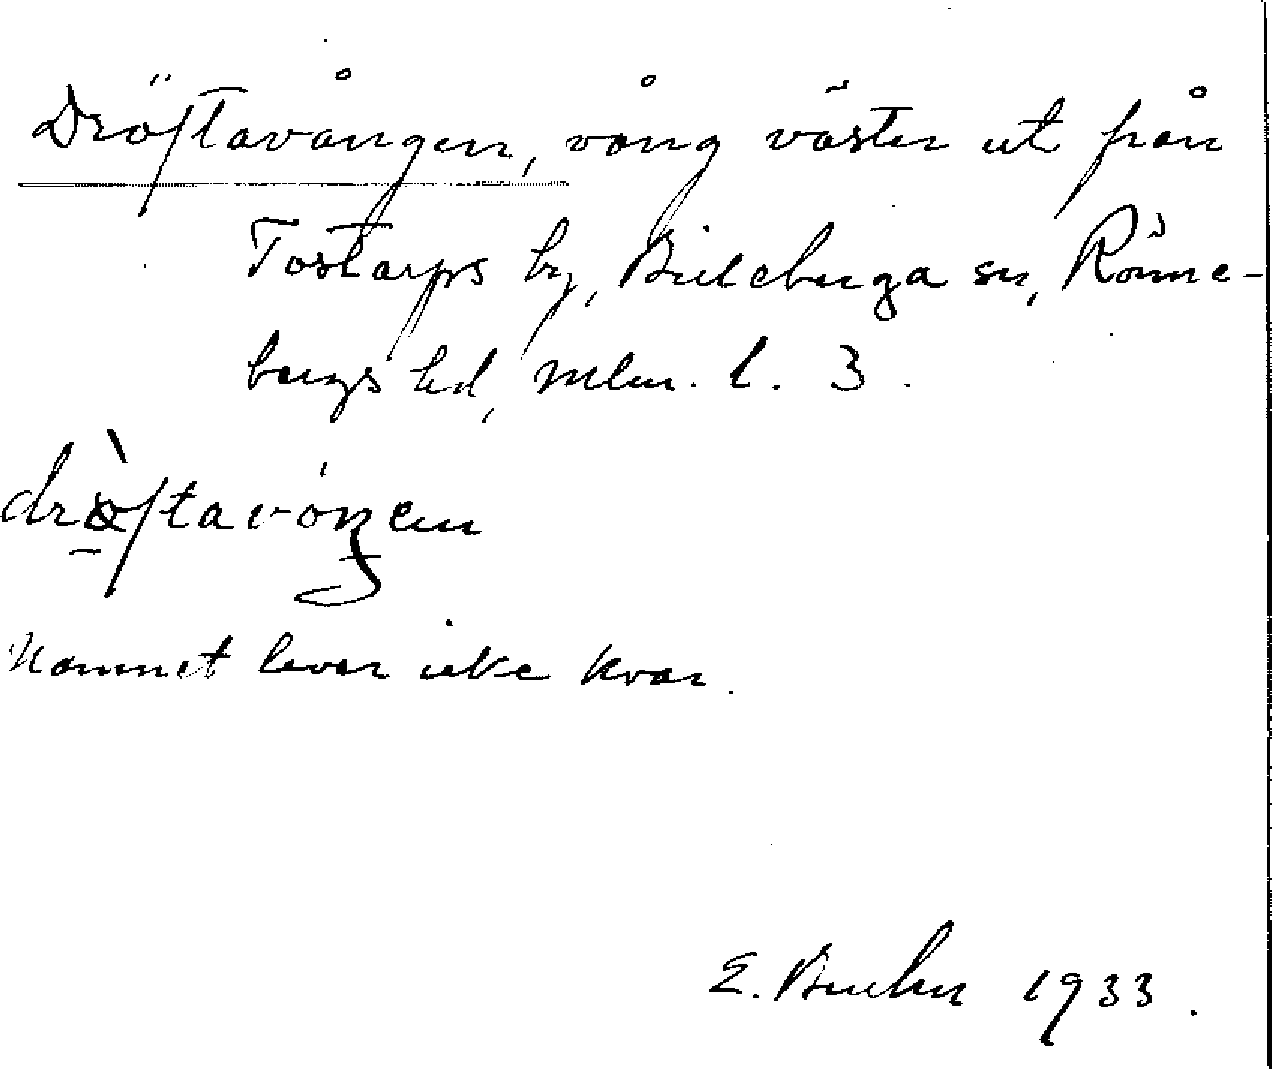 Dröftavången, vång väster ut från
Tostarps by, Billeberga sn, Rönne-
bergs hd, Mlm. l. 3.
drö̀ftavóŋen
Namnet lever icke kvar.
E. Bruhn 1933.